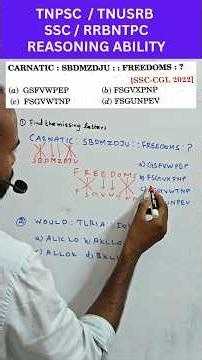 TNPSC / TNUSRB
SSC / RRBNTPC
REASONING ABILITY
CARNATIC : SBDMZDJU : : FREEDOMS : ?
[SSC-CGL 2022]
(a) GSFVWPEP (b) FSGVXPNP
(c) FSGVWTNP (d) FSGUNPEV
① Find the missing letters
CARNATIC : SBDMZDJU : : FREEDOMS : ?
SBDMZDJU
FREEDOMS
a) GSFVWPEP
b) FSGVXPNP
② WOULD : TLRIA : 
a) ALICLO